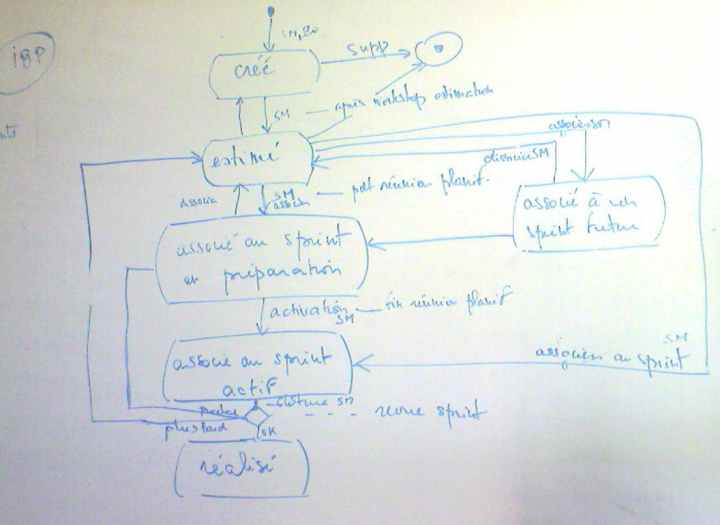 IBP
supp
créé
SM
après workshop estimation
associer SM
estimé
dissocier SM
SM
pdt réunion planif.
associé à un
sprint futur
associé au sprint
en préparation
activation
SM
fin réunion planif
SM
associer au sprint
associé au sprint
actif
clôture SM
revue sprint
plus tard
OK
réalisé